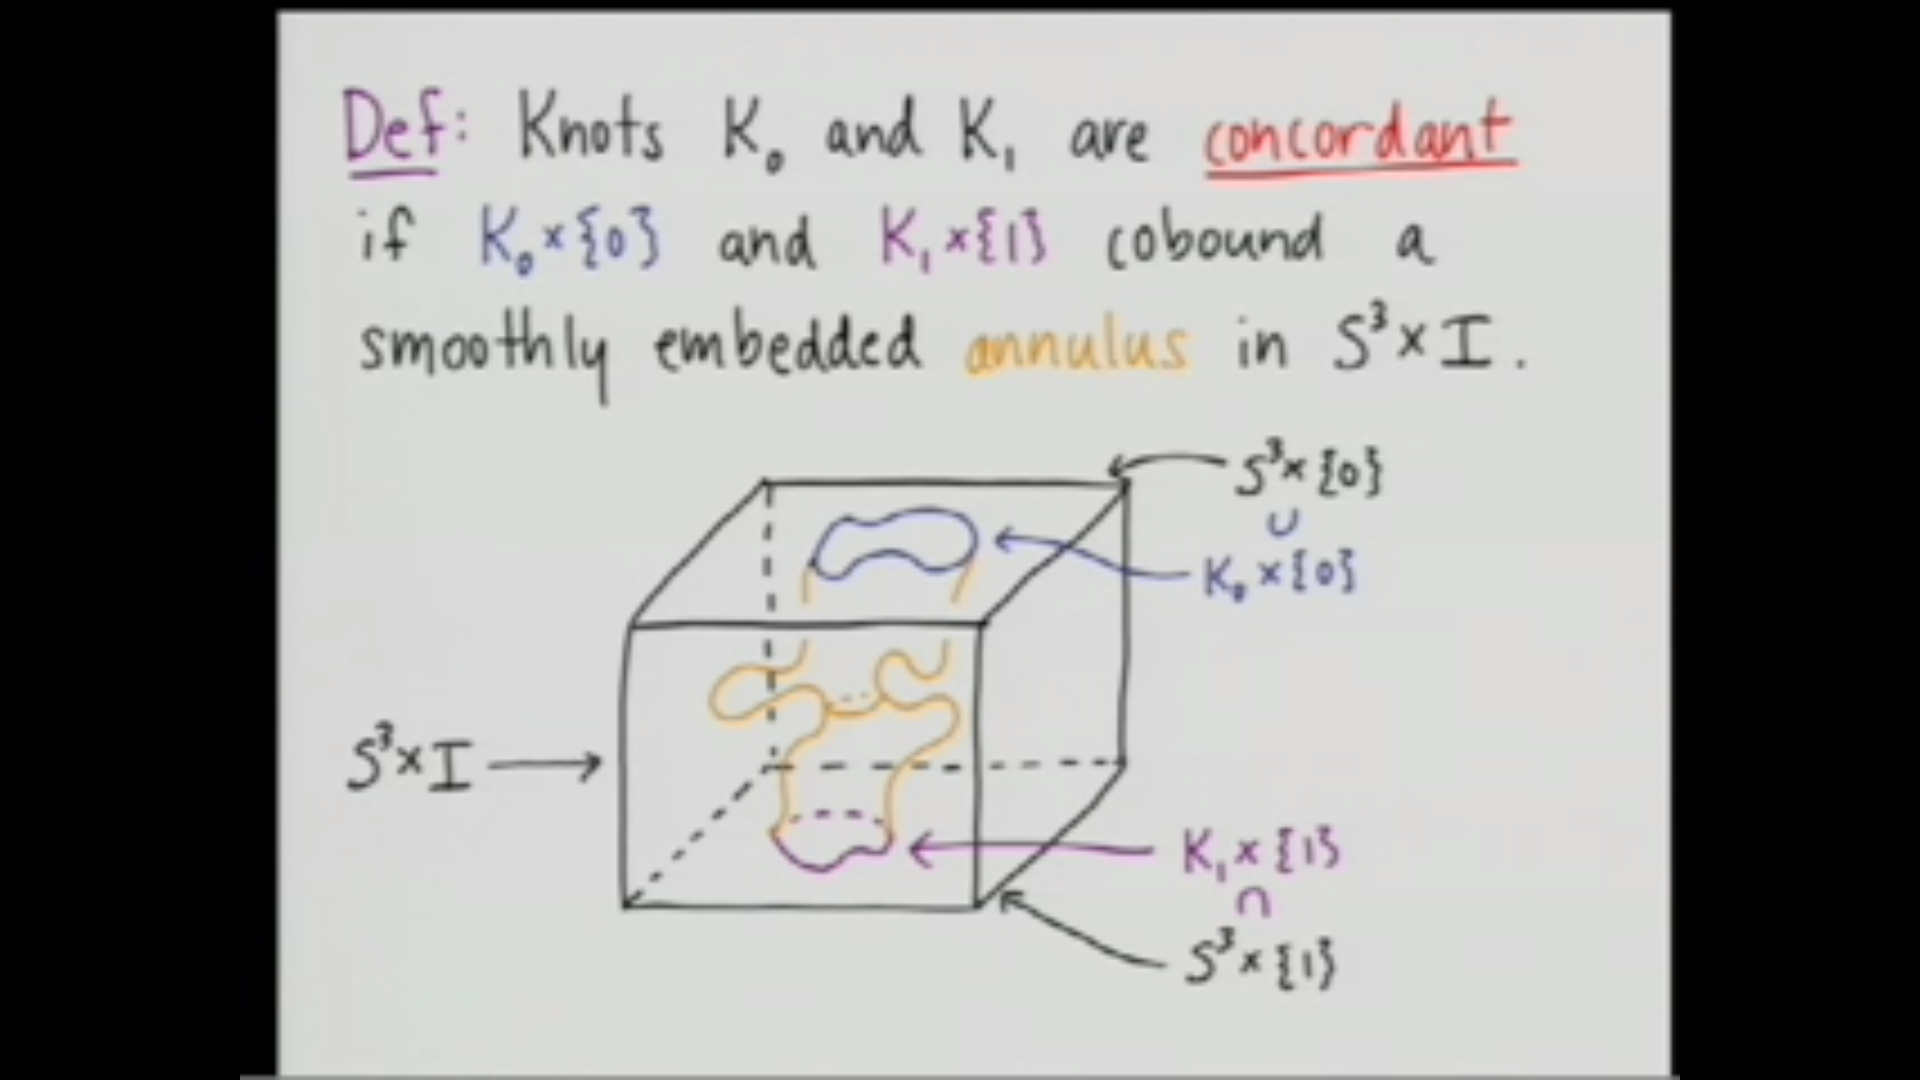 Def: Knots K₀ and K₁ are concordant
if K₀×{0} and K₁×{1} cobound a
smoothly embedded annulus in S³×I.
S³×{0}
∪
K₀×{0}
S³×I
K₁×{1}
∩
S³×{1}